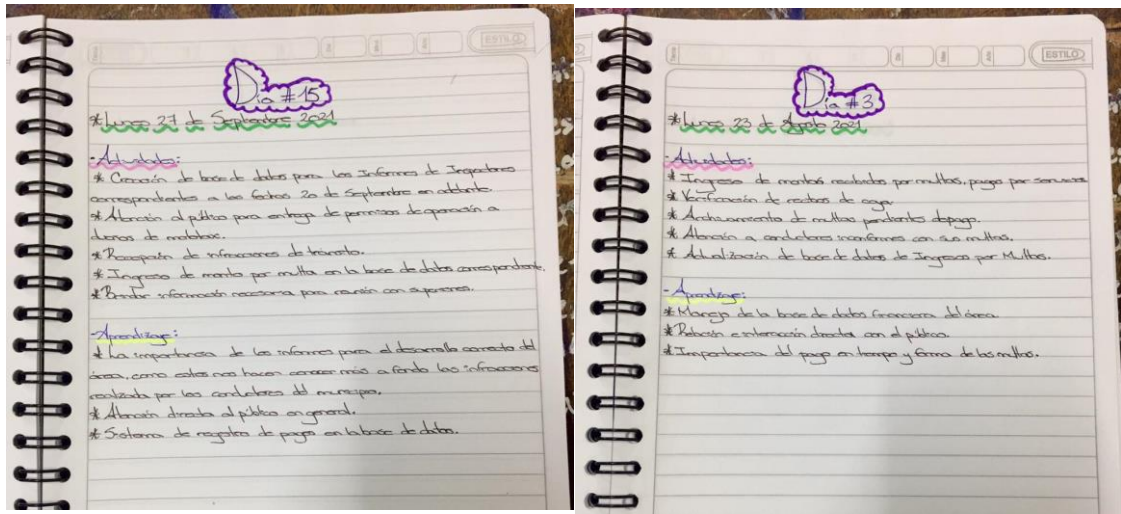 ESTILO
Día #15
*Lunes 27 de Septiembre 2021
-Actividades:
* Creación de base de datos para los Informes de Inspectores
correspondientes a las fechas 20 de Septiembre en adelante.
* Atención al público para entrega de permisos de operación a
dueños de mototaxis.
* Recepción de infracciones de tránsito.
* Ingreso de monto por multa en la base de datos correspondiente.
* Brindar información necesaria para reunión con superiores.
-Aprendizaje:
* La importancia de los informes para el desarrollo correcto del
área, como estos nos hacen conocer más a fondo las infracciones
realizada por los conductores del municipio.
* Atención directa al público en general.
* Sistema de registro de pagos en la base de datos.
ESTILO
Día #3
*Lunes 23 de Agosto 2021
-Actividades:
* Ingreso de montos recibidos por multas, pagos por servicios
* Verificación de recibos de caja
* Archivamiento de multas pendientes de pago.
* Atención a conductores inconformes con sus multas.
* Actualización de base de datos de Ingresos por Multas.
-Aprendizaje:
* Manejo de la base de datos financiera del área
* Relación e interacción directa con el público.
* Importancia del pago en tiempo y forma de las multas.